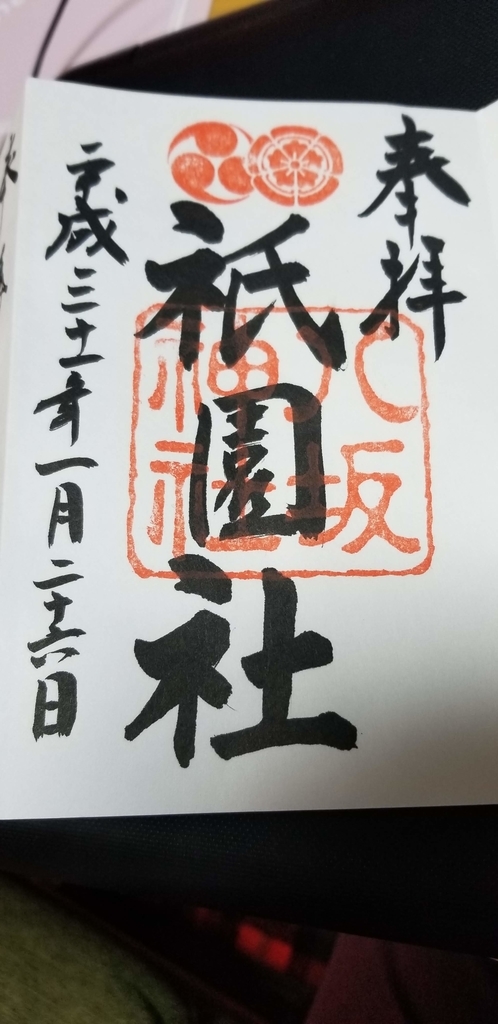 奉拝
八坂神社
祇園社
平成三十一年一月二十六日